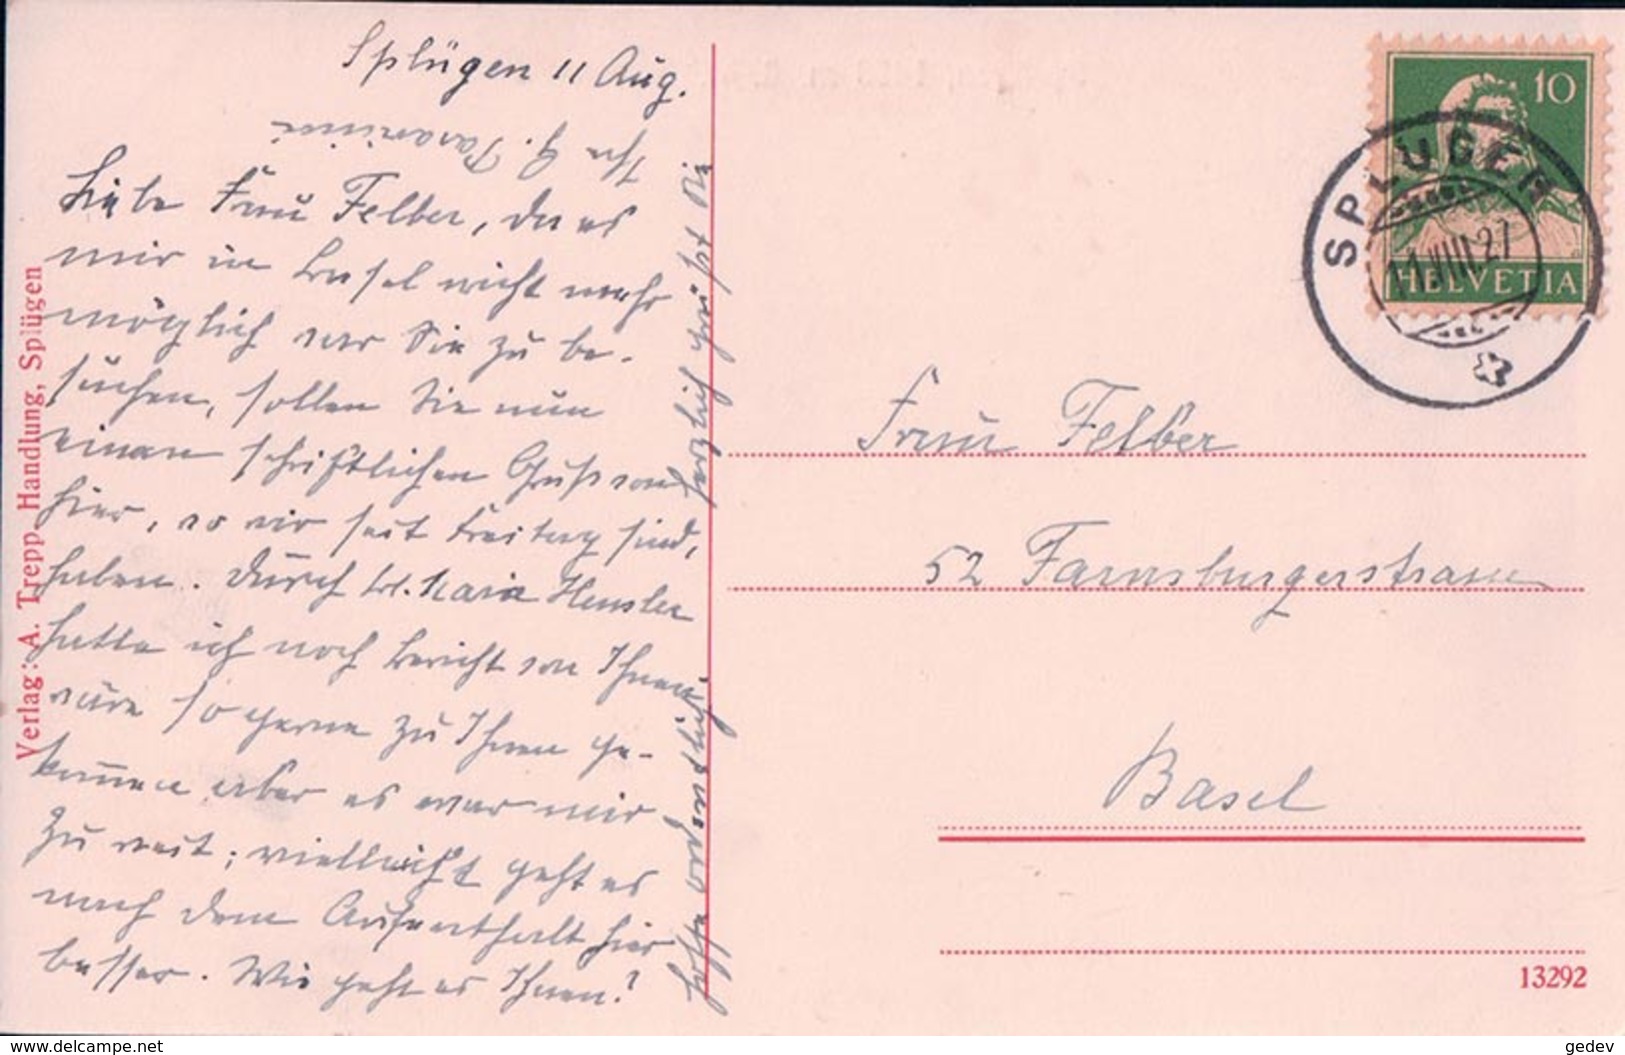 Splügen 11 Aug.
Liebe Frau Felber, da es
mir in Basel nicht mehr
möglich war Sie zu be-
suchen, sollen Sie nun
einen schriftlichen Gruss von
hier, wo wir seit Freitag sind,
haben. Durch Frl. Maria Hensler
hatte ich noch Bericht von Ihnen
wäre so gerne zu Ihnen ge-
kommen aber es war mir
zu weit; vielleicht geht es
nach dem Aufenthalt hier
besser. Wie geht es Ihnen?
hoffe ordentlich. herzlich grüsst Sie
Ihre G.
Verlag: A. Trepp, Handlung, Splügen
10
HELVETIA
SPLÜGEN
11.VIII.27
Frau Felber
52 Farnsburgerstrasse
Basel
13292
delcampe.net
gedev